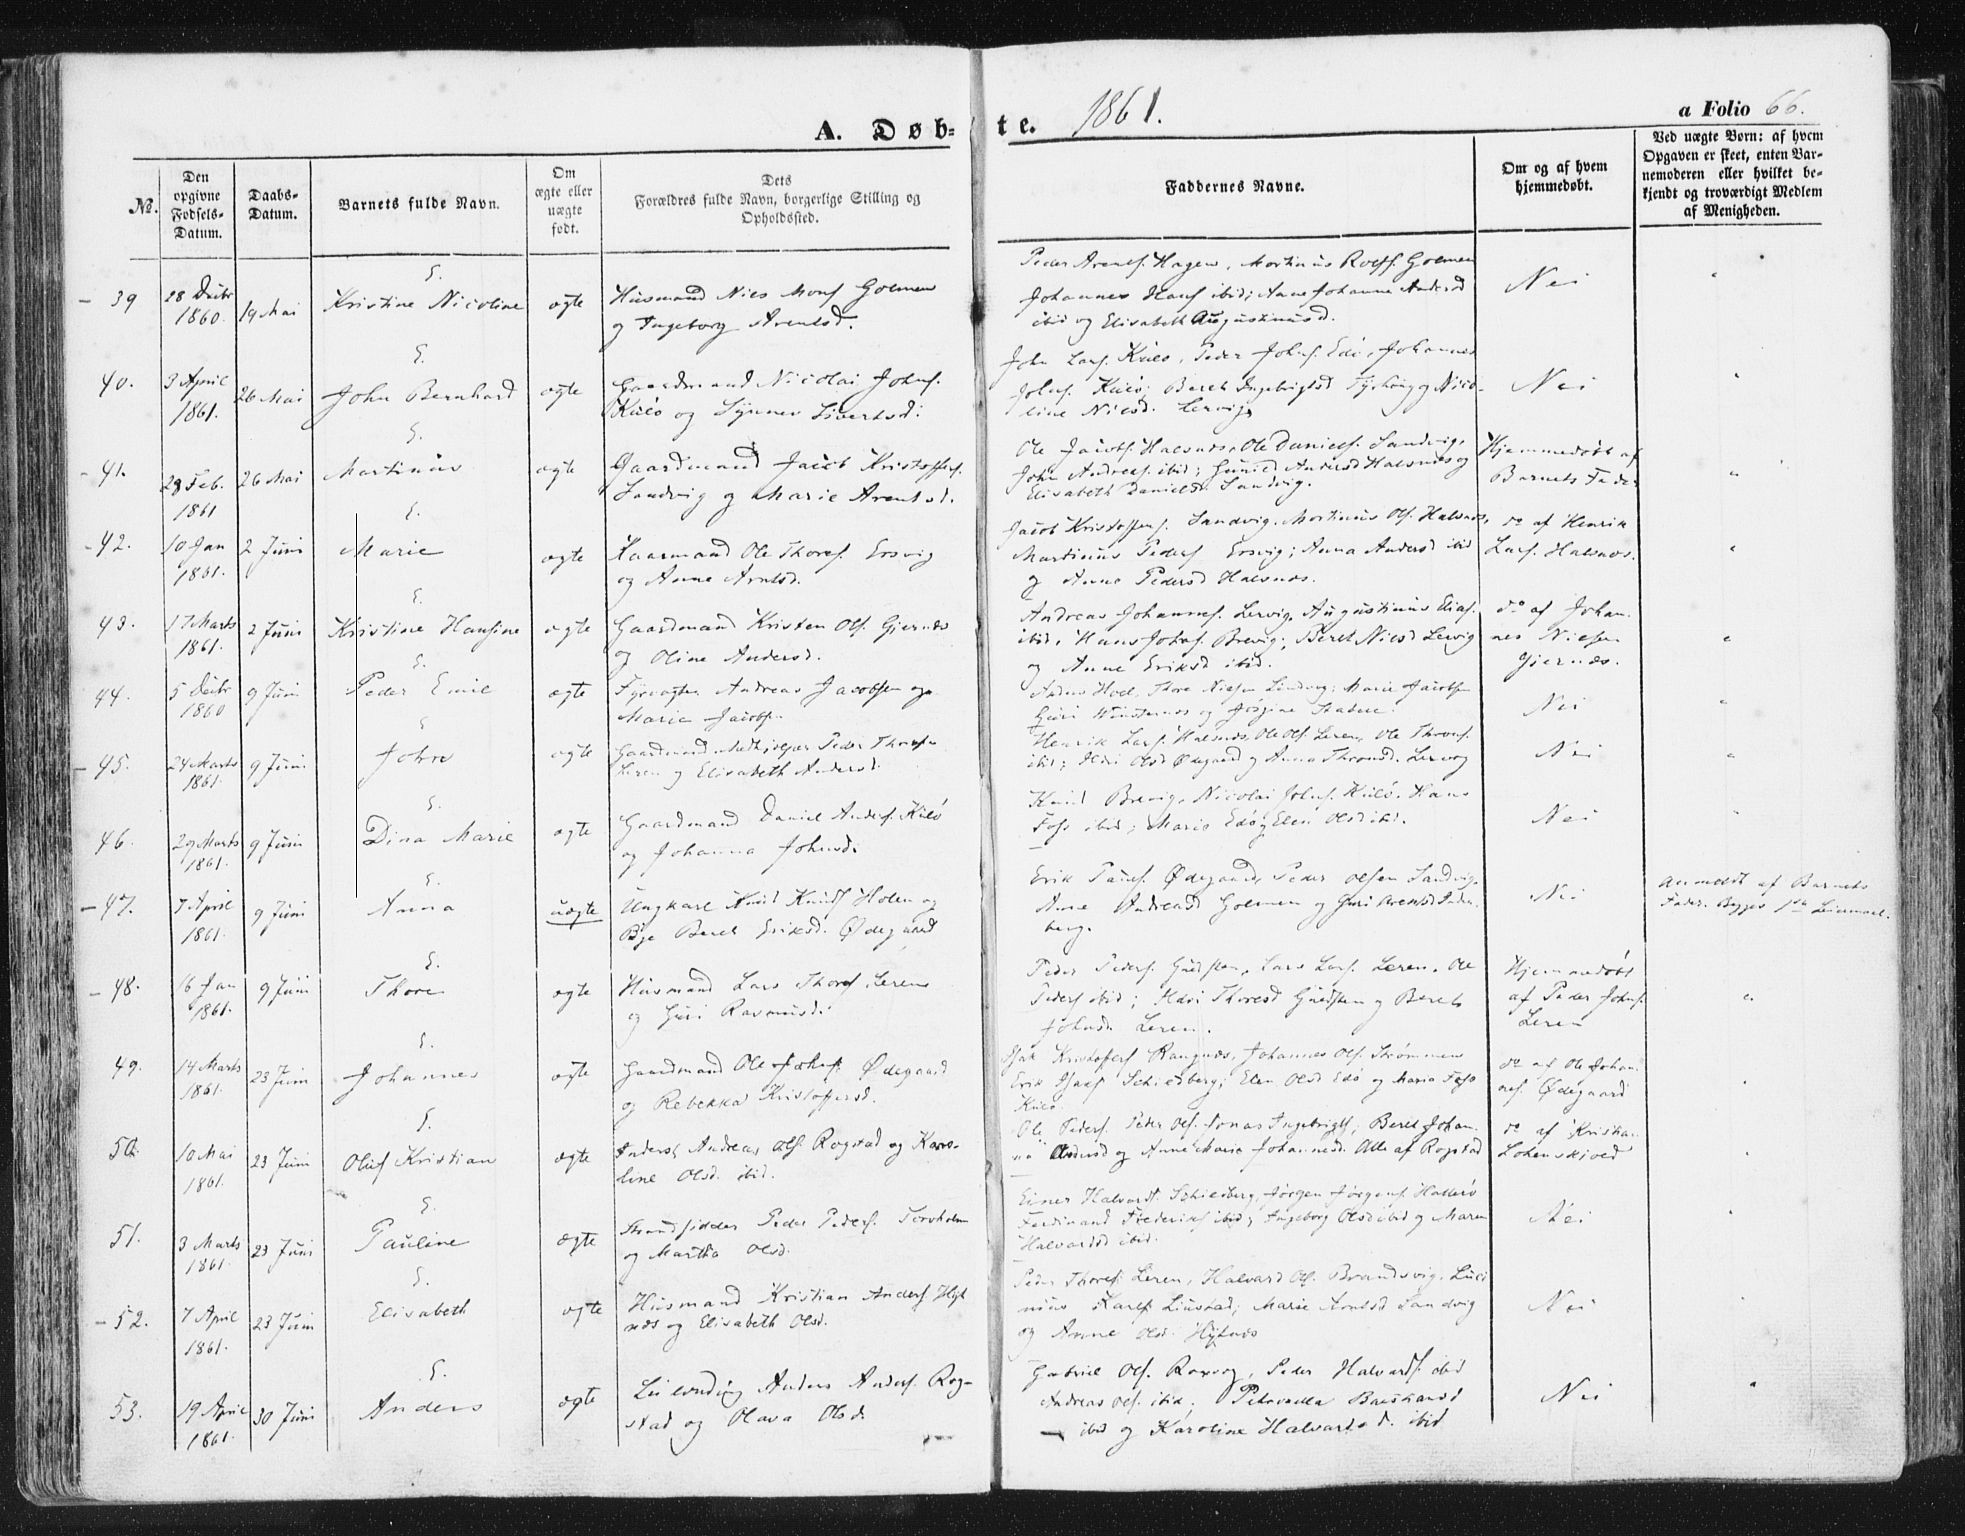 A. Døb=te. 1861.
a Folio 66.
No.
Den opgivne Fødsels-Datum.
Daabs-Datum.
Barnets fulde Navn.
Om ægte eller uægte født.
Dets Forældres fulde Navn, borgerlige Stilling og Opholdssted.
Faddernes Navne.
Om og af hvem hjemmedøbt.
Ved uægte Børn: af hvem Opgaven er skeet, enten Barnemoderen eller hvilket bekjendt og troværdigt Medlem af Menigheden.
39 28 Decbr 1860. 19 Mai
E.
Kristine Nicoline ægte
Husmand Niels Monss. Golmen
og Ingeborg Arentsd.
Peder Arentss. Hagen, Martinus Rolfss. Golmen
Johannes Hanss ibid; Anne Johanne Andersd
ibid og Elisabeth Augustinusd.
Nei "
40. 3 April 1861. 26 Mai
E.
John Bernhard ægte
Gaardmand Nicolai Johns.
Kulø og Synnev Sivertsd.
John Larss. Kulø, Peder Johns. Edø, Johannes
Johns. Kulø; Bereth Ingebrigtsd Tyshoug og Nico-
line Nilsd. Lervig
Nei "
41. 28 Feb. 1861 26 Mai
E.
Martinus ægte
Gaardmand Jacob Kristoffers.
Sandvig og Marie Arentsd.
Ole Jacobs. Halsnæs, Ole Daniels. Sandvig,
John Andreas. ibid; Gunild Andersd Halsnæs og
Elisabeth Danielsd. Sandvig.
Hjemmedøbt af
Barnets Fader "
42. 10 Jan 1861. 2 Juni
E.
Marie ægte
Kaarmand Ole Thores. Ersvig
og Anne Arntsd.
Jacob Kristoffers. Sandvig, Martinus Ols. Halsnæs,
Martinus Peders Ersvig; Anna Andersd ibid
og Anne Pedersd Halsnæs.
do af Henrik
Lars. Halsnæs. "
43. 17 Marts 1861. 2 Juni
E.
Kristine Hansine ægte
Gaardmand Kristen Ols. Gjernæs
og Oline Andersd.
Andreas Johannes. Lervig, Augustinus Elias.
ibid, Hans Johns. Brevig; Bereth Nilsd Lervig
og Anne Eriksd ibid.
do af Johan-
nes Nielsen
Gjernæs. "
44. 5 Decbr 1860 9 Juni
E.
Peder Emil ægte
Fyrvogter Andreas Jacobsen og
Marie Jacobs.
Anders Hoel, Thore Nielsen Lindvig; Marie Jacobsen
Guri Winsternes og Jørgine
Nei "
45. 24 Marts 1861. 9 Juni
E.
John ægte
Gaardmand Peder Thores.
Leren og Elisabeth Andersd.
Henrik Lars. Halsnæs, Ole Ols. Leren, Ole Throns.
ibid; Ildri Olsd Ødegaard og Anna Thronsd. Lervog
Nei "
46. 29 Marts 1861. 9 Juni
E.
Dina Marie ægte
Gaardmand Daniel Anders. Kulø
og Johanna Johnsd.
Knud Brevig, Nicolai Johns. Kulø, Hans
Foss ibid; Marie Edø og Elen Olsd ibid.
Nei "
47. 7 April 1861. 9 Juni
E.
Anna uægte
Ungkarl Knud Knuds Holen og
Pige Bereth Eriksd. Ødegaard
Erik Pauls. Ødegaard, Peder Olsen Sandvig,
Anne Andreasd Golmen og Guri Arentsd
berg.
Nei
Anmeldt af Barnets
Fader. Begges 1ste Leiermaal.
48. 16 Jan 1861. 9 Juni
E.
Thore ægte
Husmand Lars Thores Leren
og Guri Rasmusd.
Peder Peders. Gulsten, Lars Lars. Leren, Ole
Peders ibid; Ildri Thoresd Gulsten og Bereth
Johnsd. Leren.
Hjemmedøbt
af Peder Johns.
Leren "
49. 14 Marts 1861. 23 Juni
E.
Johannes ægte
Gaardmand Ole Johs. Ødegaard
og Rebekka Kristoffersd.
Isak Kristoffers Rangnæs, Johannes Ols. Strømmen
Erik Isaks Schiedberg; Elen Olsd Edø og Maria Foss
Kulø.
do af Ole Johan-
nes. Ødegaard "
50. 10 Mai 1861. 23 Juni
E.
Oluf Kristian ægte
Inderst Andreas Ols. Rogstad og Karo-
line Olsd. ibid.
Ole Peders. Peder Ols. Jonas Ingebrigts; Bereth Johan-
na Andersd og Anne Marie Johannesd. Alle af Rogstad
do af Kristian
Lossenskjold "
51. 3 Marts 1861. 23 Juni
E.
Pauline ægte
Strandsidder Peder Peders. Torsholm
og Martha Olsd.
Einer Halvards. Schiedberg, Jørgen Jørgens. Hallerø
Ferdinand Frederiks ibid; Ingeborg Olsd ibid og Maren
Halvardsd ibid.
Nei "
52. 7 April 1861. 23 Juni
E.
Elisabeth ægte
Husmand Kristian Anders Hyt-
næs og Elisabeth Olsd.
Peder Thores. Leren, Halvard Ols. Brandsvig, Luci-
nius Karls. Liustad; Marie Arntsd Sandvig
og Anne Olsd. Hytnæs
Nei "
53. 19 April 1861. 30 Juni
E.
Anders ægte
Leilending Anders Anders. Rog-
stad og Olava Olsd.
Gabriel Ols. Roxvog, Peder Halvards. ibid
Andreas Ols. ibid; Petronella
ibid og Karoline Halvardsd. ibid
Nei "